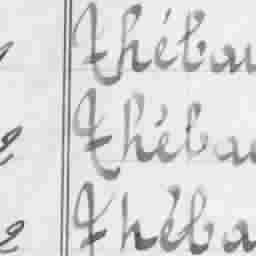 thébau
thébau
théba